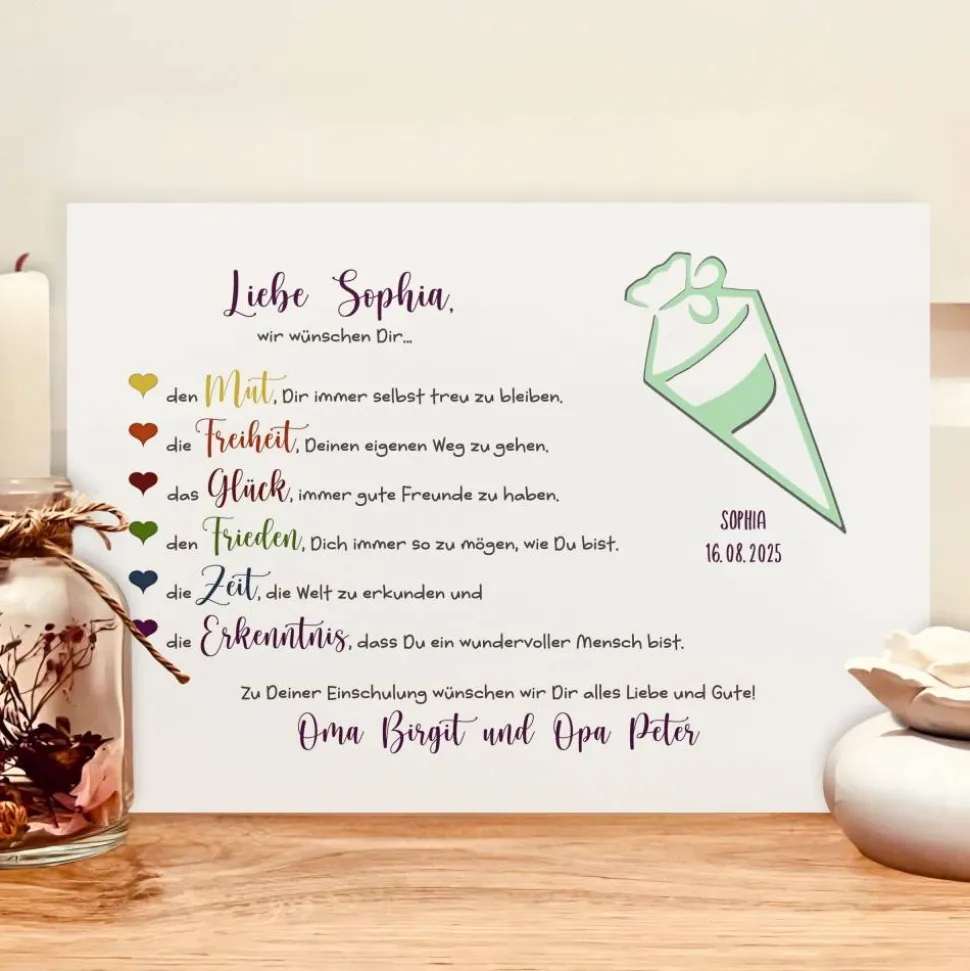 Liebe Sophia,
wir wünschen Dir...
den Mut, Dir immer selbst treu zu bleiben.
die Freiheit, Deinen eigenen Weg zu gehen.
das Glück, immer gute Freunde zu haben.
den Frieden, Dich immer so zu mögen, wie Du bist.
die Zeit, die Welt zu erkunden und
die Erkenntnis, dass Du ein wundervoller Mensch bist.
Zu Deiner Einschulung wünschen wir Dir alles Liebe und Gute!
Oma Birgit und Opa Peter
SOPHIA
16.08.2025